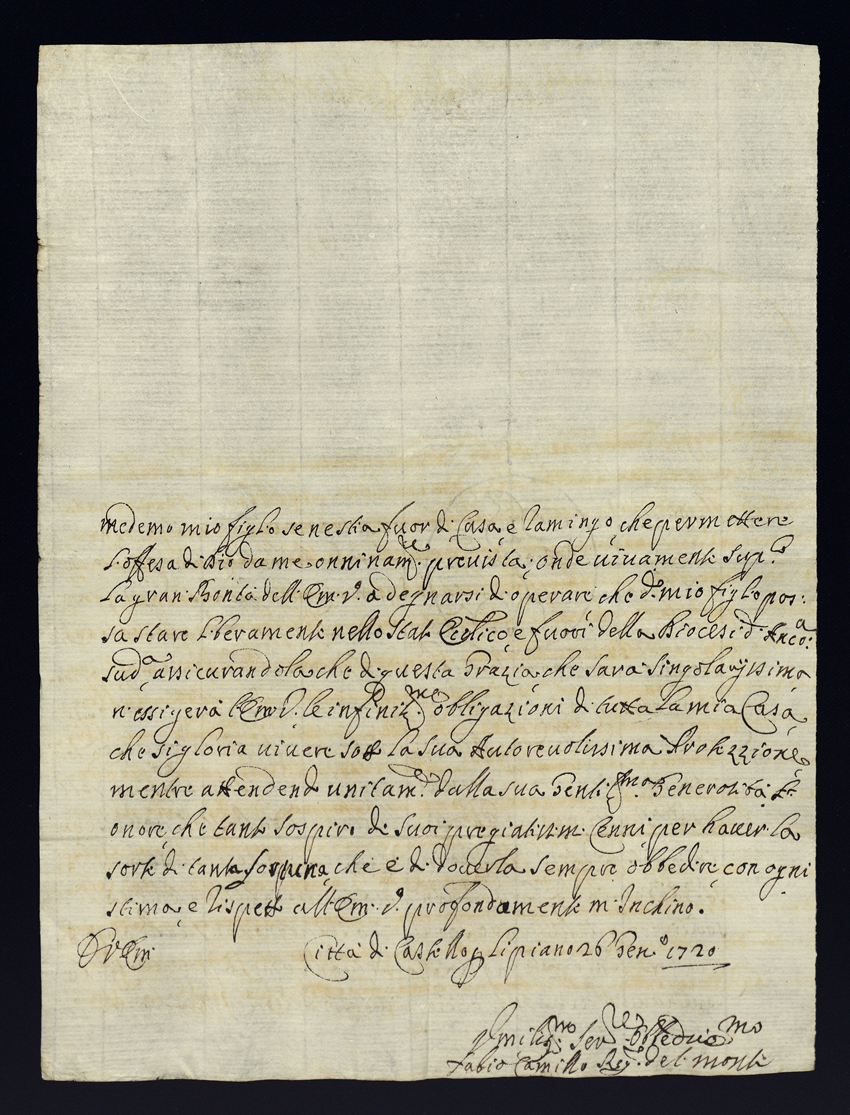 medemo mio figlio se ne stia fuor di Casa e ramingo che permettere
l'offesa di Dio da me onninam.te prevista; onde vivamente sup.co
la gran Bontà dell'Em.V. a degnarsi di operare che d.o mio figlio pos:
sa stare liberamente nello Stato Ecclico e fuori della Diocesi di Anco:a
sud.a assicurandola che di questa Grazia, che sarà singolarissima
n'essigerà l'Em.V. le infinit.me obligazioni di tutta la mia Casa
che si gloria vivere sotto la sua Autorevolissima Protezzione
mentre attendendo unitam.te dalla sua Gentil.ma Generosità l'
onore, che tanto sospiro de suoi pregiatissimi Cenni per haver la
sorte di tanta sospirata, che è di doverla sempre obbedire, con ogni
stima, e rispetto all'Em.V. profondamente m'Inchino.
Di V.Em.
Città di Castello p Lipiano 26 Gen.o 1720
Umiliss.mo Ser.re Obbed.mo
Fabio Camillo del Monte